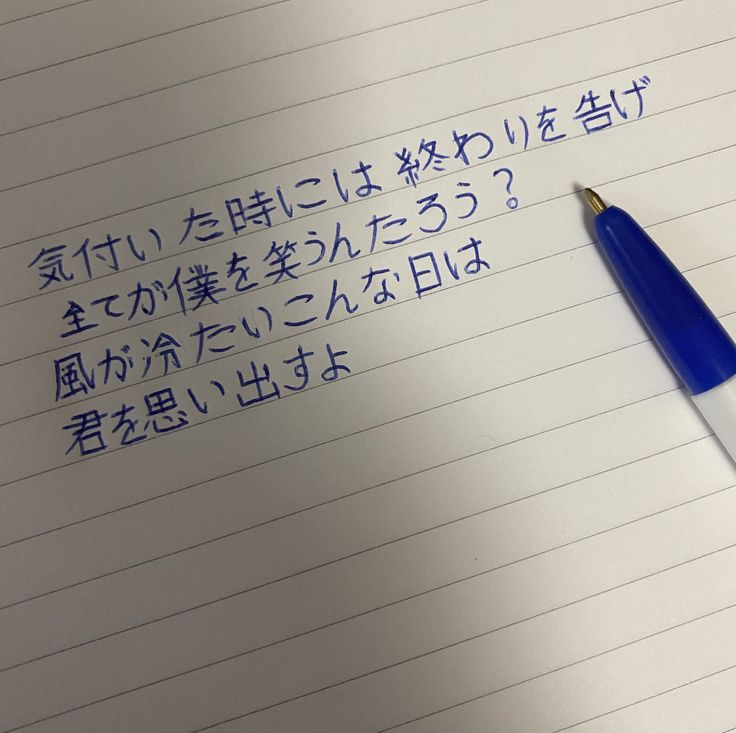 気付いた時には終わりを告げ
全てが僕を笑うんたろう?
風が冷たいこんな日は
君を思い出すよ